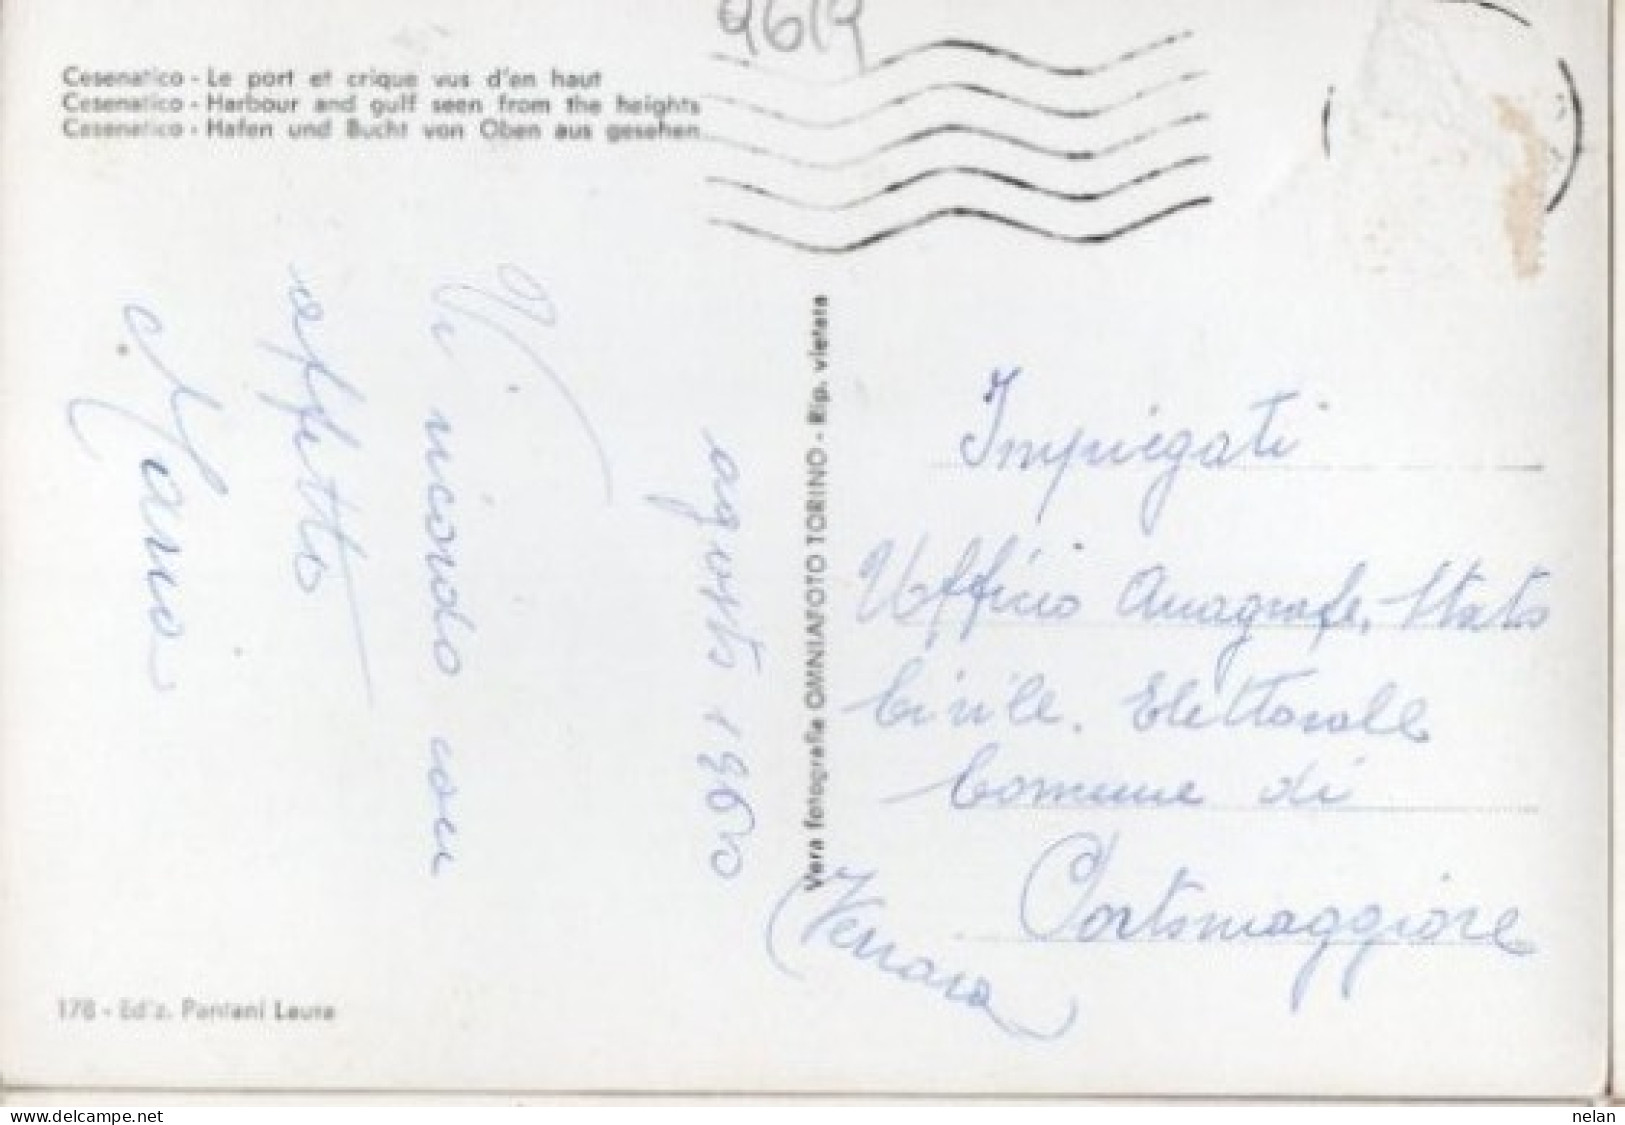 9619
Cesenatico - Le port et crique vus d'en haut
Cesenatico - Harbour and gulf seen from the heights
Cesenatico - Hafen und Bucht von Oben aus gesehen
agosto 1960
Vi ricordo con
affetto
Mario
Vera fotografia OMNIAFOTO TORINO - Rip. vietata
Impiegati
Ufficio Anagrafe, Stato
Civile. Elettorale
Comune di
Portomaggiore
(Ferrara)
178 - Ediz. Pantani Laura
www.delcampe.net
nelan